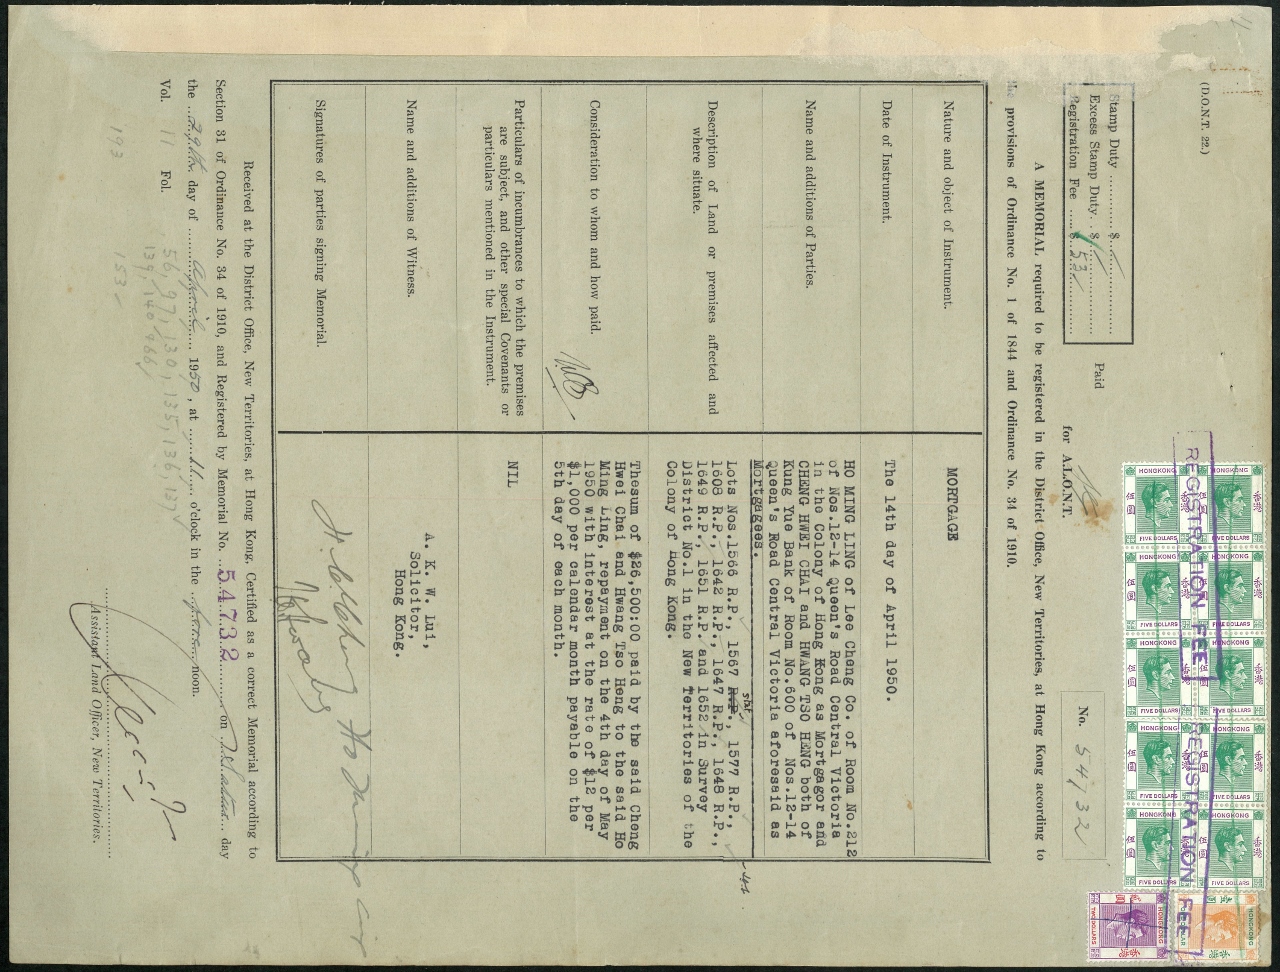 (D.O.N.T. 22.)
Stamp Duty .......... $
Excess Stamp Duty .. $
Registration Fee ..... $ 53/
Paid
for A.L.O.N.T.
No. 54732
A MEMORIAL required to be registered in the District Office, New Territories, at Hong Kong according to
the provisions of Ordinance No. 1 of 1844 and Ordinance No. 34 of 1910.
Nature and object of Instrument.
MORTGAGE
Date of Instrument.
The 14th day of April 1950.
Name and additions of Parties.
HO MING LING of Lee Cheng Co. of Room No.212
of Nos.12-14 Queen's Road Central Victoria
in the Colony of Hong Kong as Mortgagor and
CHENG HWEI CHAI and HWANG TSO HENG both of
Kung Yue Bank of Room No.600 of Nos.12-14
Queen's Road Central Victoria aforesaid as
Mortgagees.
Description of Land or premises affected and
where situate.
Lots Nos.1566 R.P., 1567 R.P., 1577 R.P.,
1608 R.P., 1642 R.P., 1647 R.P., 1648 R.P.,
1649 R.P., 1651 R.P. and 1652 in Survey
District No.1 in the New Territories of the
Colony of Hong Kong.
Consideration to whom and how paid.
Thesum of $26,500:00 paid by the said Cheng
Hwei Chai and Hwang Tso Heng to the said Ho
Ming Ling, repayment on the 4th day of May
1950 with interest at the rate of $12 per
$1,000 per calendar month payable on the
5th day of each month.
Particulars of incumbrances to which the premises
are subject, and other special Covenants or
particulars mentioned in the Instrument.
NIL
Name and additions of Witness.
A. K. W. Lui,
Solicitor,
Hong Kong.
Signatures of parties signing Memorial.
Received at the District Office, New Territories, at Hong Kong, Certified as a correct Memorial according to
Section 31 of Ordinance No. 34 of 1910, and Registered by Memorial No. 54732 on day
the 29th day of April 1950, at 11 o'clock in the noon.
Vol. 11 Fol.
56, 97, 130, 135, 136, 137
139, 140
153
193
Assistant Land Officer, New Territories.
REGISTRATION FEE
REGISTRATION FEE
HONGKONG
香港
伍圓
FIVE DOLLARS
HONGKONG
香港
伍圓
FIVE DOLLARS
HONGKONG
香港
伍圓
FIVE DOLLARS
HONGKONG
香港
伍圓
FIVE DOLLARS
HONGKONG
香港
伍圓
FIVE DOLLARS
HONGKONG
香港
伍圓
FIVE DOLLARS
HONGKONG
香港
伍圓
FIVE DOLLARS
HONGKONG
香港
伍圓
FIVE DOLLARS
HONGKONG
香港
伍圓
FIVE DOLLARS
HONGKONG
香港
伍圓
FIVE DOLLARS
HONGKONG
香港
TWO DOLLARS
HONGKONG
香港
DOLLAR